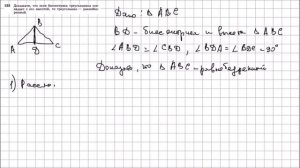 133 Докажите, что если биссектриса треугольника совпадает с его высотой, то треугольник — равнобедренный.
Дано: Δ ABC
BD - биссектриса и высота Δ ABC
∠ABD = ∠CBD, ∠BDA = ∠BDC = 90°
Доказать, что Δ ABC - равнобедренный
B
A D C
1) Рассмо